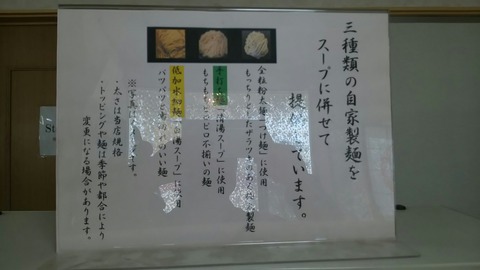 三種類の自家製麺を
スープに併せて
提供しています。
全粒粉太麺「つけ麺」に使用
もっちりとしたザラツキのある自家製麺
手打ち麺「清湯スープ」に使用
もちもちピロピロ不揃いの麺
低加水細麺「白湯スープ」に使用
パツパツと のいい麺
※写真は です。
・太さは当店規格
・トッピングや麺は季節や都合により
変更になる場合があります。
St